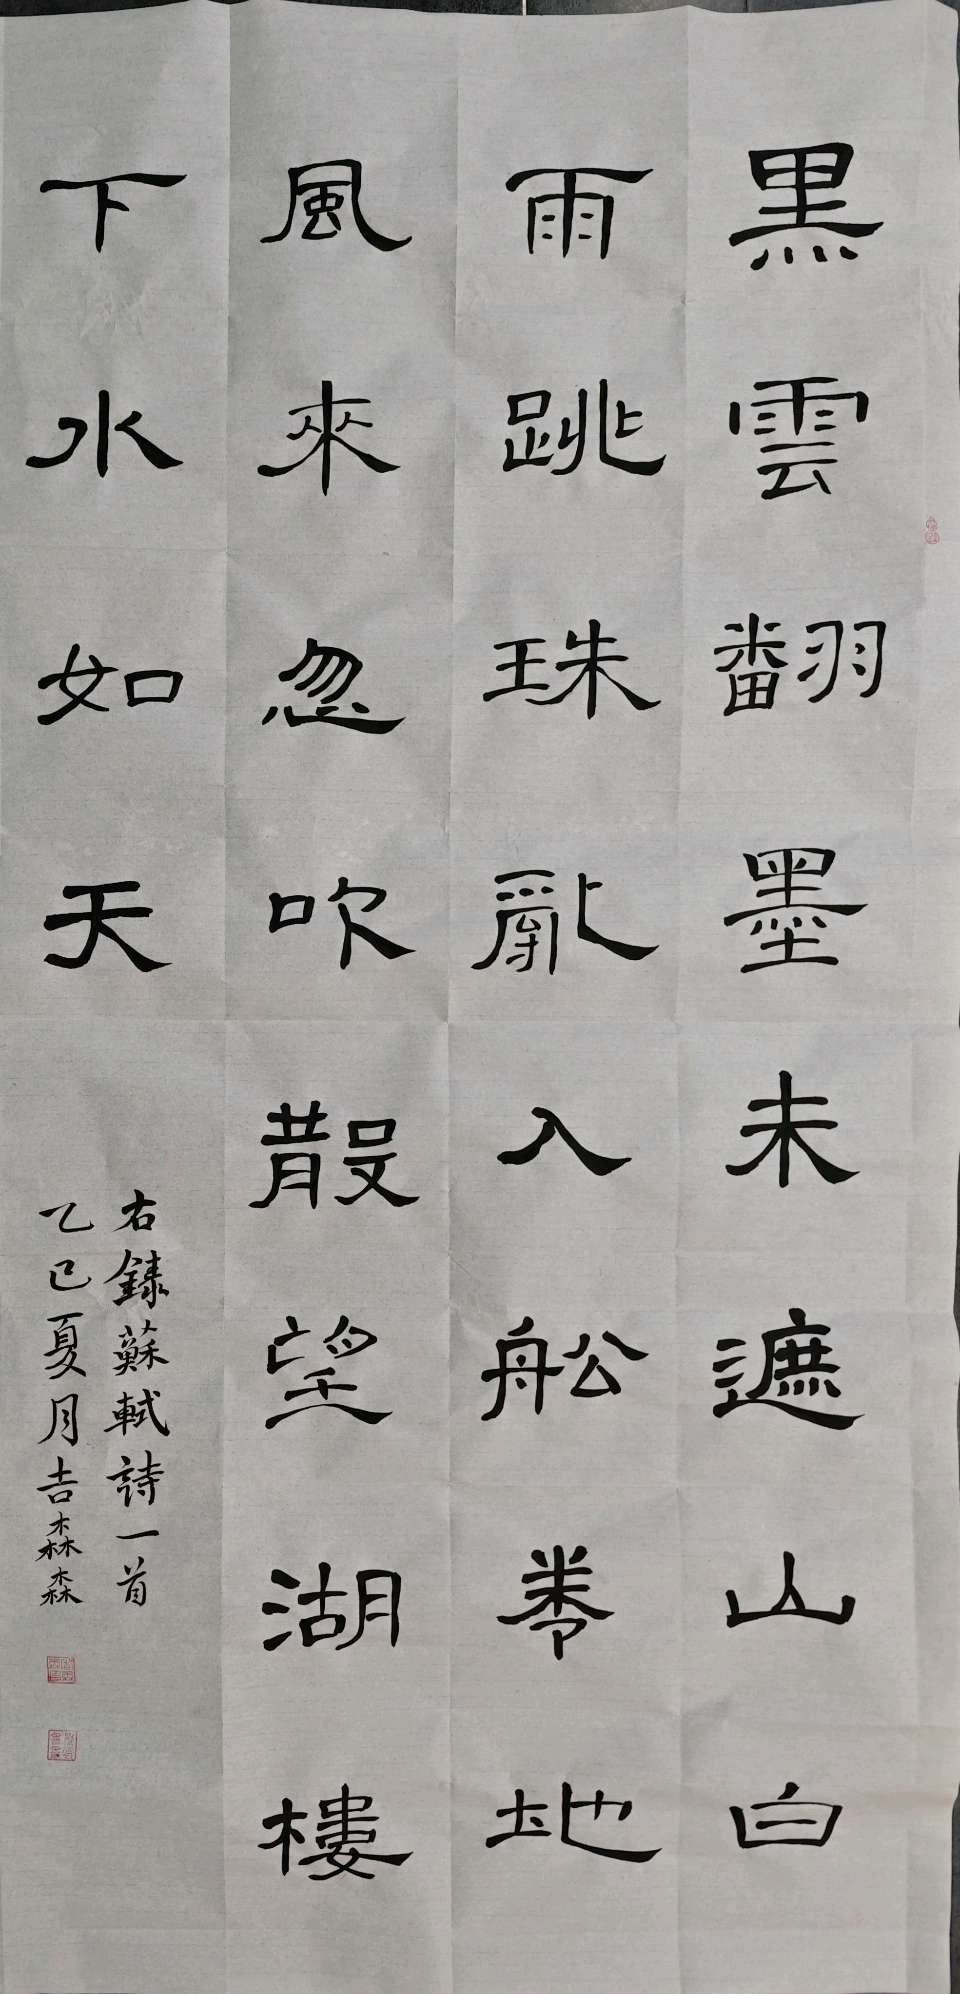 黑雲翻墨未遮山白
雨跳珠亂入舩卷地
風來忽吹散望湖樓
下水如天
右錄蘇軾詩一首
乙巳夏月吉森森